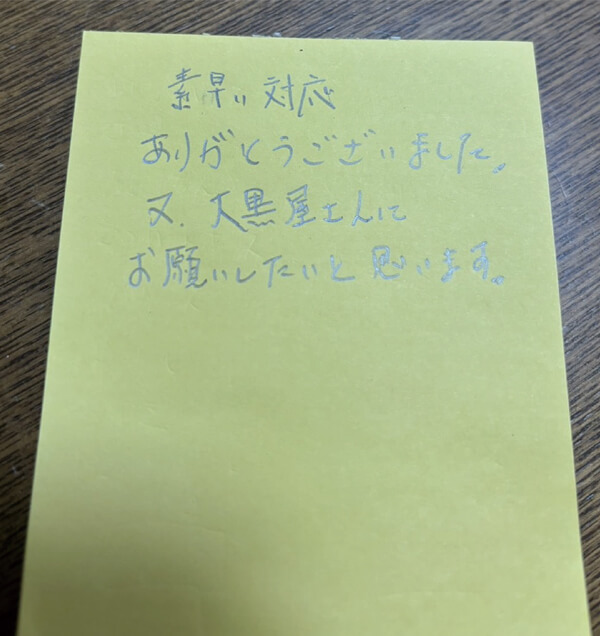 素早い対応
ありがとうございました。
又、大黒屋さんに
お願いしたいと思います。